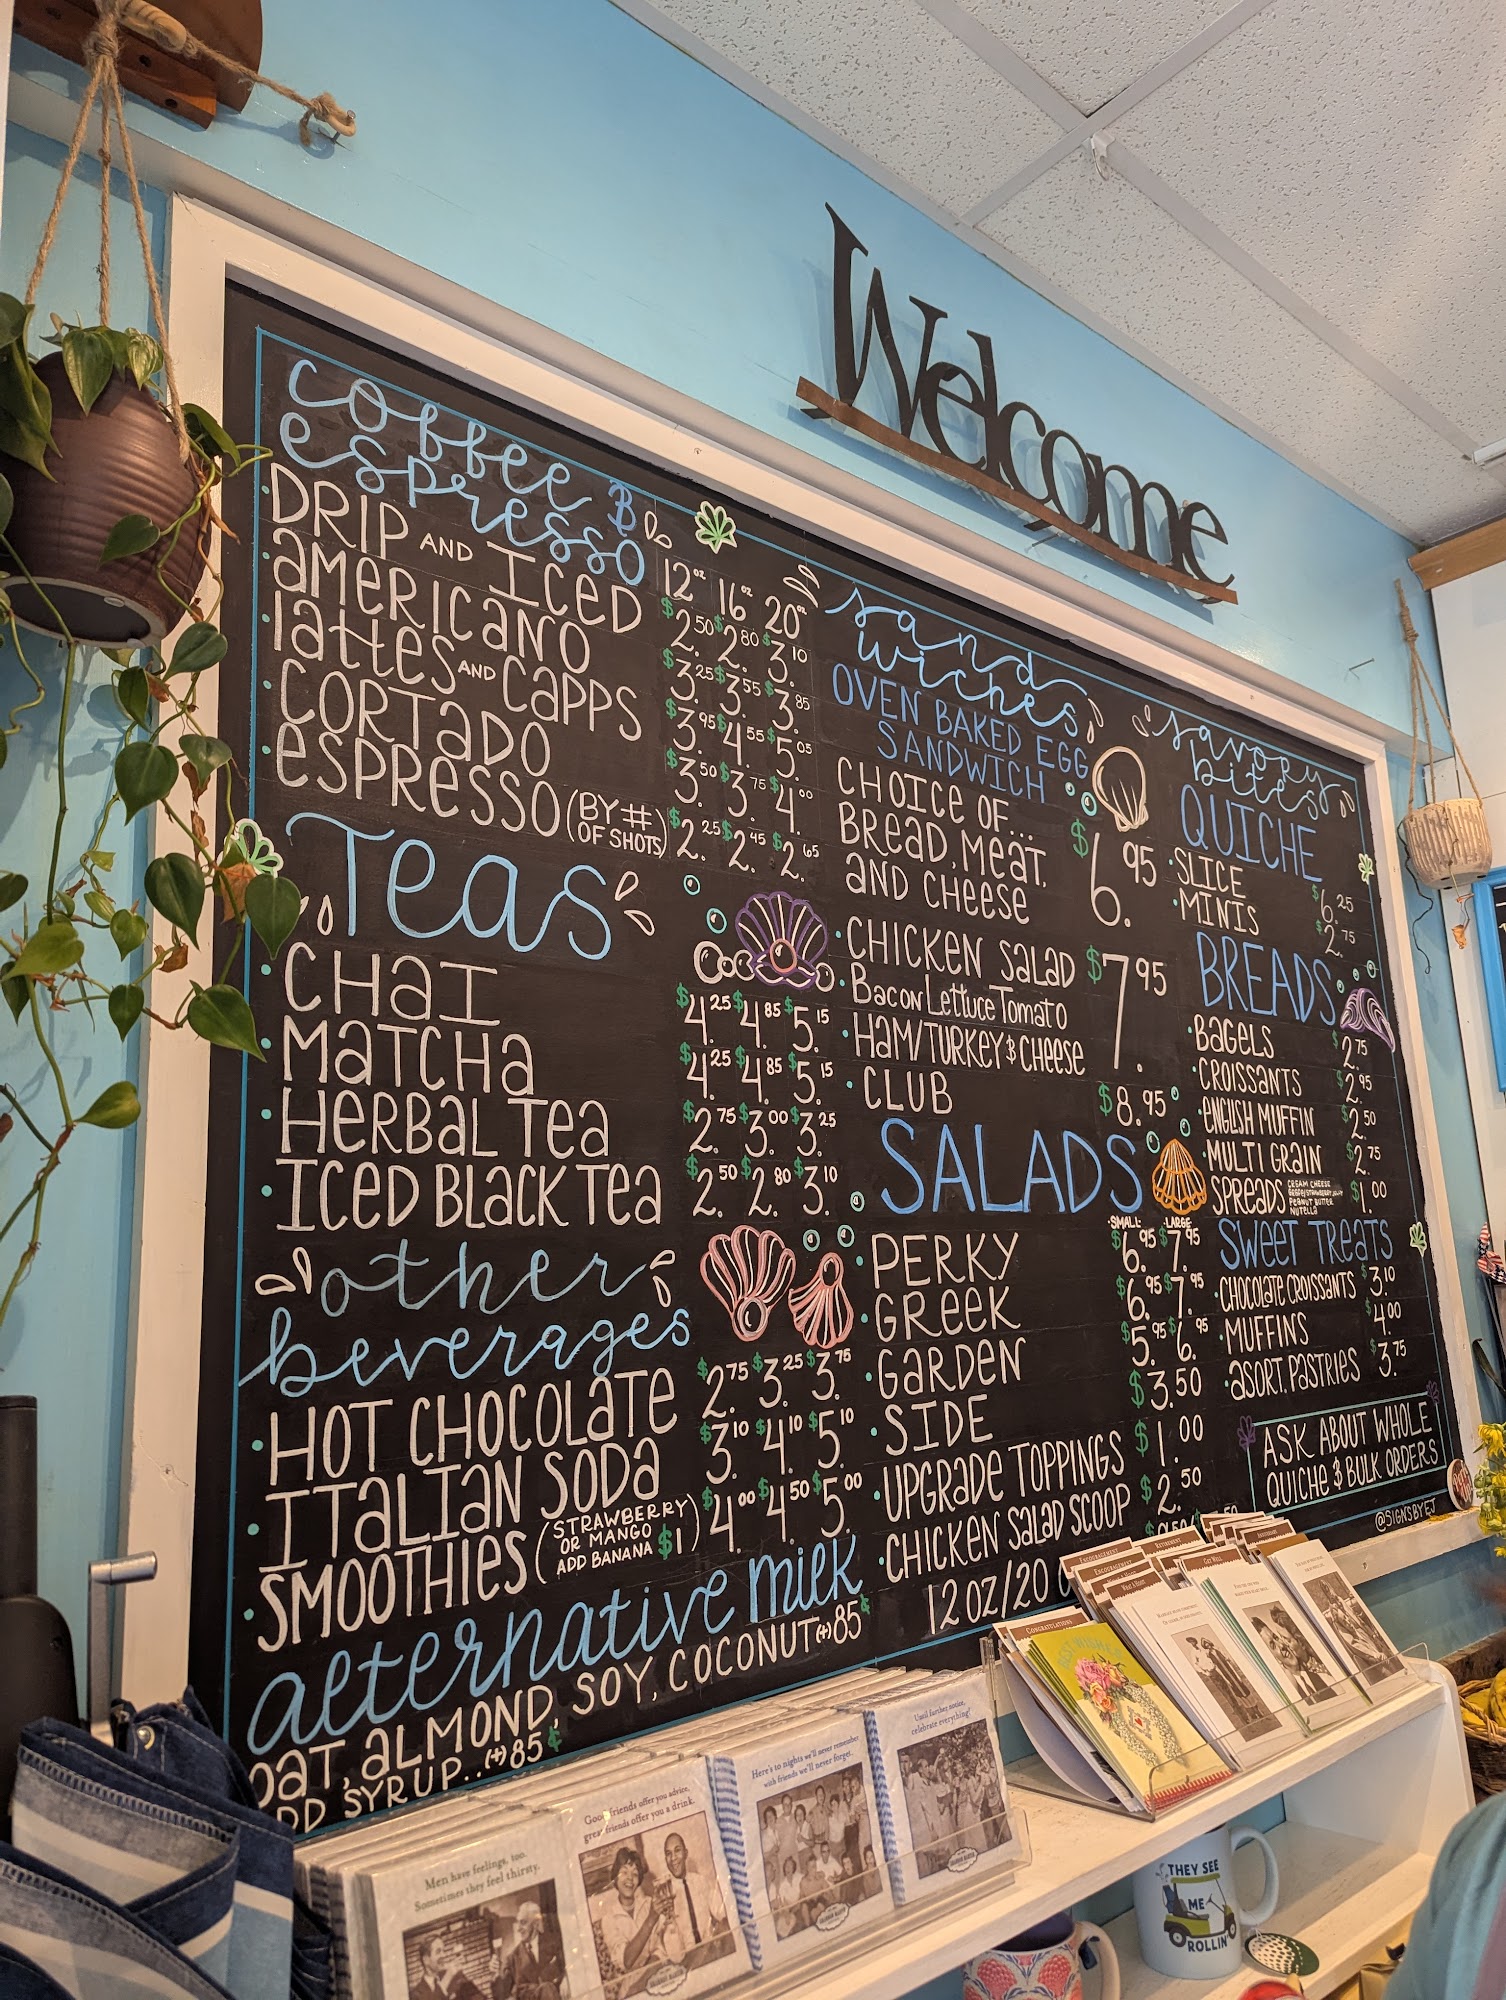 Welcome
coffee &
espresso
12oz 16oz 20oz
DRIP AND ICED $2.50 $2.80 $3.10
AMERICANO $3.25 $3.55 $3.85
lattes AND CAPPS $3.95 $4.55 $5.05
CORTADO $3.50 $3.75 $4.00
ESPRESSO (BY # OF SHOTS) $2.25 $2.45 $2.65
Teas
CHAI $4.25 $4.85 $5.15
MATCHA $4.25 $4.85 $5.15
HERBAL TEA $2.75 $3.00 $3.25
ICED BLACK TEA $2.50 $2.80 $3.10
other
beverages
HOT CHOCOLATE $2.75 $3.25 $3.75
ITALIAN SODA $3.10 $4.10 $5.10
SMOOTHIES (STRAWBERRY OR MANGO ADD BANANA $1) $4.00 $4.50 $5.00
alternative milk
OAT, ALMOND, SOY, COCONUT (+) 85¢
ADD SYRUP.. (+) 85¢
sand
wiches
OVEN BAKED EGG
SANDWICH
CHOICE OF...
BREAD, MEAT,
AND CHEESE
$6.95
CHICKEN SALAD $7.95
Bacon Lettuce Tomato
HAM/TURKEY & CHEESE
CLUB $8.95
SALADS
SMALL LARGE
PERKY $6.95 $7.95
GREEK $6.95 $7.95
GARDEN $5.95 $6.95
SIDE $3.50
UPGRADE TOPPINGS $1.00
CHICKEN SALAD SCOOP $2.50
12OZ/20
savory
bites
QUICHE
SLICE $6.25
MINIS $2.75
BREADS
BAGELS $2.75
CROISSANTS $2.95
ENGLISH MUFFIN $2.50
MULTI GRAIN $2.75
SPREADS $1.00
CREAM CHEESE
PEANUT BUTTER
NUTELLA
SWEET TREATS
CHOCOLATE CROISSANTS $3.10
MUFFINS $4.00
ASORT. PASTRIES $3.75
ASK ABOUT WHOLE
QUICHE & BULK ORDERS
@SIGNSBYEJ
Men have feelings, too.
Sometimes they feel thirsty.
Good friends offer you advice,
great friends offer you a drink.
Here's to nights we'll never remember
with friends we'll never forget.
Until further notice,
celebrate everything!
CONGRATULATIONS
ENCOURAGEMENT
ENCOURAGEMENT
GET WELL
THEY SEE
ME
ROLLIN'